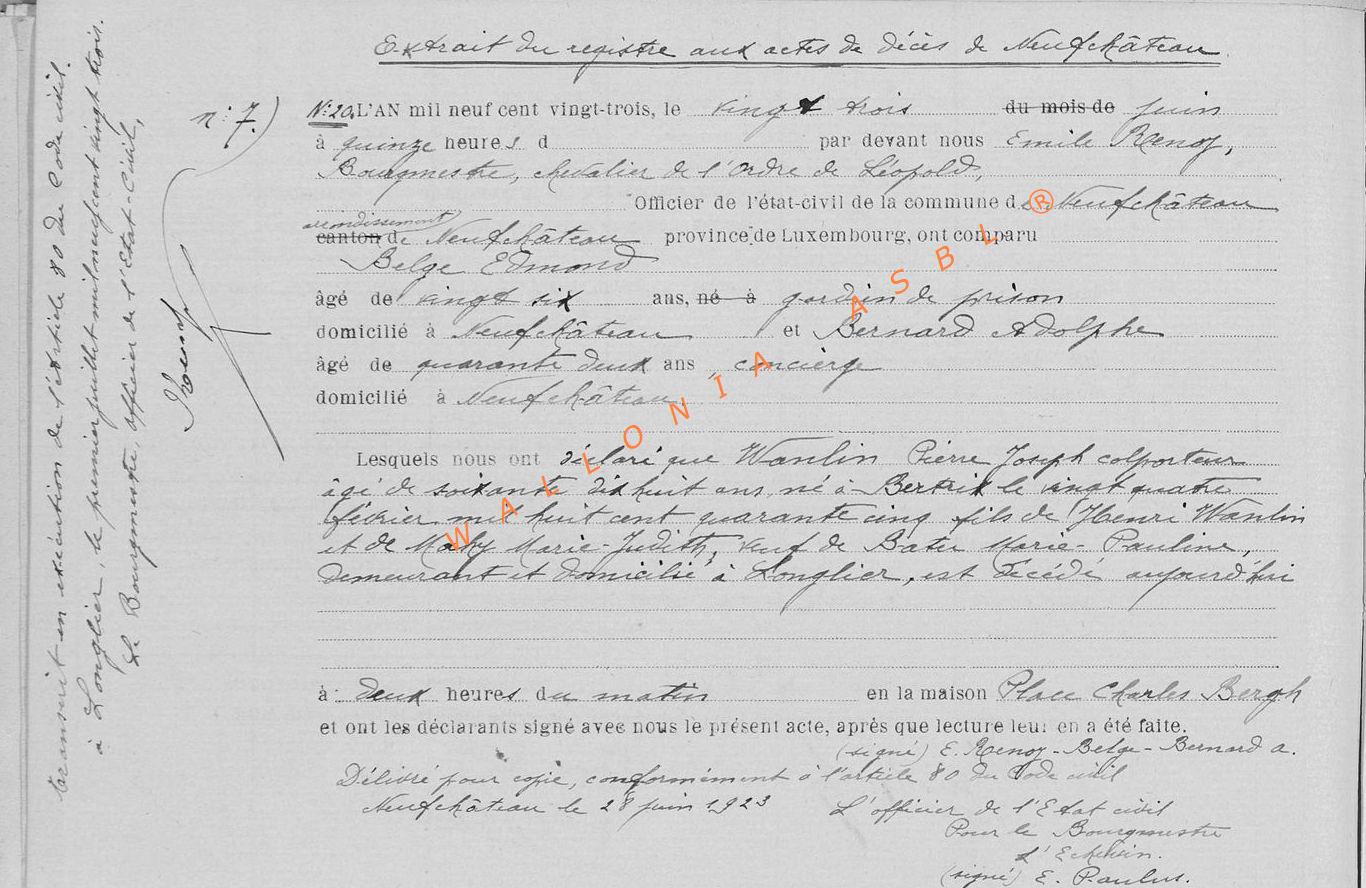 Extrait du registre aux actes de décès de Neufchâteau
n: 7)
N: 20. L'AN mil neuf cent vingt-trois, le vingt trois du mois de juin
à quinze heures d par devant nous Emile Renoy,
Bourgmestre, chevalier de l'Ordre de Léopold,
Officier de l'état-civil de la commune de Neufchâteau
arrondissement
canton de Neufchâteau province de Luxembourg, ont comparu
Belge Edmond
âgé de vingt six ans, né à gardien de prison
domicilié à Neufchâteau et Bernard Adolphe
âgé de quarante deux ans, concierge
domicilié à Neufchâteau,
Lesquels nous ont déclaré que Wanlin Pierre Joseph colporteur
âgé de soixante dix huit ans, né à Bertrix le vingt quatre
février mil huit cent quarante cinq fils de Henri Wanlin
et de Maky Marie-Judith, veuf de Bater Marie-Pauline,
demeurant et domicilié à Longlier, est décédé aujourd'hui
à deux heures du matin en la maison Place Charles Bergh
et ont les déclarants signé avec nous le présent acte, après que lecture leur en a été faite.
(signé) E. Renoy - Belge - Bernard A.
Délivré pour copie, conformément à l'article 80 du Code civil
Neufchâteau le 28 juin 1923 L'officier de l'Etat civil
Pour le Bourgmestre
L'Echevin.
(signé) E. Paulus.
transcrit en exécution de l'Article 80 du Code civil.
à Longlier, le premier juillet mil neuf cent vingt trois.
Le Bourgmestre, officier de l'Etat-Civil,
WALLONIA ASBL ®